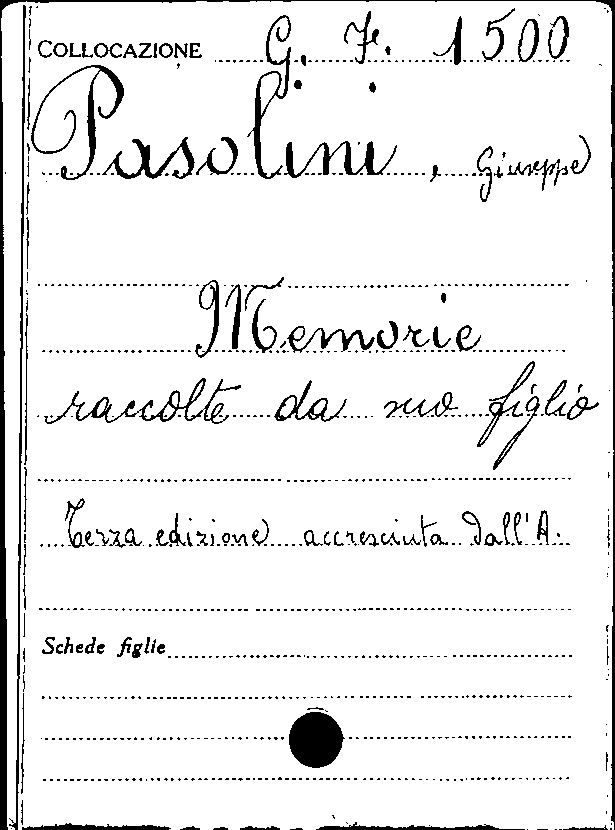 COLLOCAZIONE G. F. 1500
Pasolini, Giuseppe
Memorie
raccolte da suo figlio
Terza edizione accresciuta dall'A.
Schede figlie